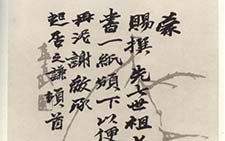 蒙
賜撰先世祖
書一紙頒下以便
再泥謝敬承
起居之謙頓首